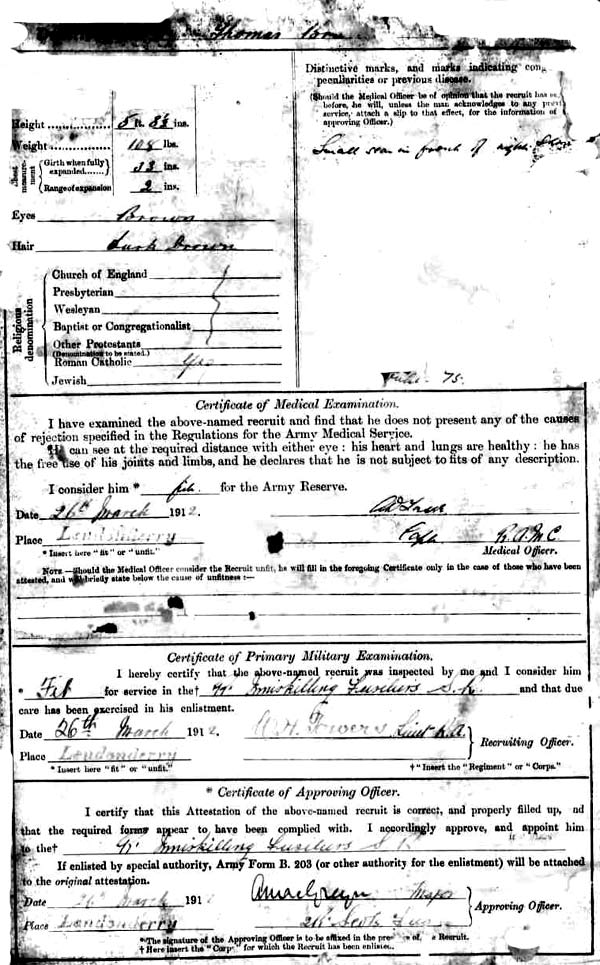 Thomas
Distinctive marks, and marks indicating cong
peculiarities or previous disease.
(Should the Medical Officer be of opinion that the recruit has
before, he will, unless the man acknowledges to any
service, attach a slip to that effect, for the information of
approving Officer.)
Small scar in front of right
Height 5 ft. ins.
Weight 108 lbs.
Chest measure-ment
Girth when fully expanded 33 ins.
Range of expansion 2 ins.
Eyes Brown
Hair Dark Brown
Religious denomination
Church of England
Presbyterian
Wesleyan
Baptist or Congregationalist
Other Protestants
(Denomination to be stated.)
Roman Catholic Yes
Jewish
75.
Certificate of Medical Examination.
I have examined the above-named recruit and find that he does not present any of the causes
of rejection specified in the Regulations for the Army Medical Service.
He can see at the required distance with either eye : his heart and lungs are healthy : he has
the free use of his joints and limbs, and he declares that he is not subject to fits of any description.
I consider him * fit for the Army Reserve.
Date 26th March 1912.
Place Londonderry Capt R.A.M.C
* Insert here "fit" or "unfit." Medical Officer.
NOTE.—Should the Medical Officer consider the Recruit unfit, he will fill in the foregoing Certificate only in the case of those who have been
attested, and will briefly state below the cause of unfitness :—
Certificate of Primary Military Examination.
I hereby certify that the above-named recruit was inspected by me and I consider him
* Fit for service in the† Inniskilling Fusiliers S.R. and that due
care has been exercised in his enlistment.
Date 26th March 1912. Lieut
Place Londonderry Recruiting Officer.
* Insert here "fit" or "unfit." † "Insert the "Regiment" or "Corps."
* Certificate of Approving Officer.
I certify that this Attestation of the above-named recruit is correct, and properly filled up, nd
that the required forms appear to have been complied with. I accordingly approve, and appoint him
to the† Inniskilling Fusiliers S
If enlisted by special authority, Army Form B. 203 (or other authority for the enlistment) will be attached
to the original attestation.
Date 26th March 191 Major
Place Londonderry Approving Officer.
*The signature of the Approving Officer is to be affixed in the of, e Recruit.
† Here insert the "Corps" for which the Recruit has been enlisted.